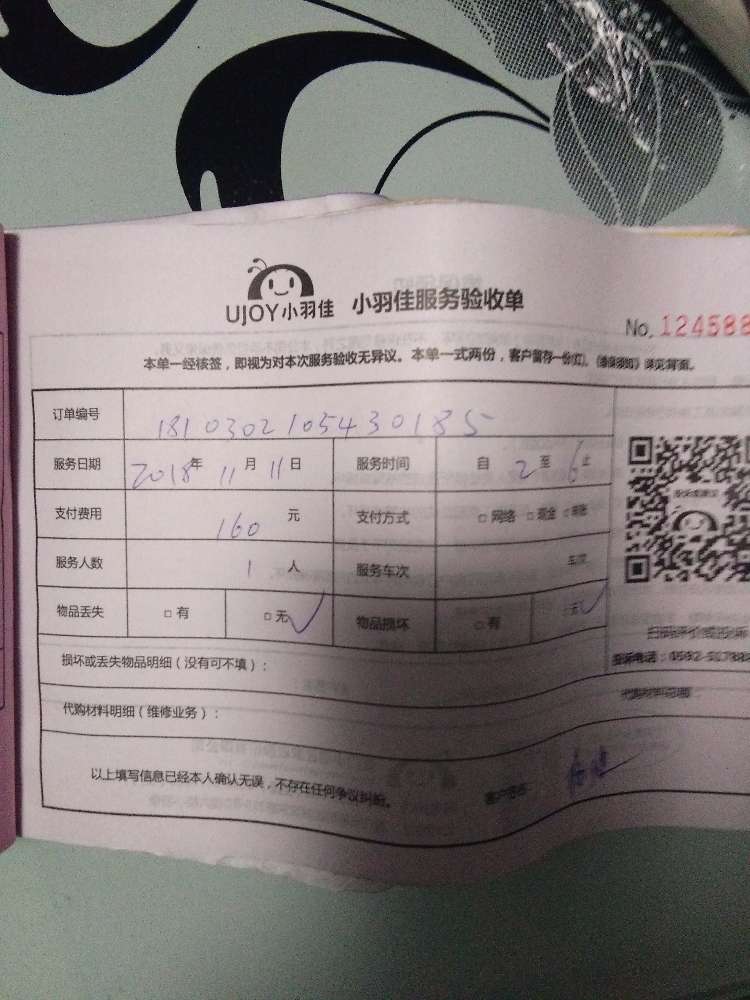 UJOY小羽佳 小羽佳服务验收单
No. 124588
本单一经核签，即视为对本次服务验收无异议。本单一式两份，客户留存一份(红)。《维保须知》详见背面。
订单编号 18103021054330185
服务日期 2018年 11月 11日 服务时间 自 2 至 6 止
支付费用 160 元 支付方式 □ 网络 □ 现金 □
服务人数 1 人 服务车次 车次
物品丢失 □ 有 □ 无 ✓ 物品损坏 □ 有 无 ✓
扫码评价或投诉
投诉电话：0592-5178
损坏或丢失物品明细（没有可不填）：
代购材料明细（维修业务）： 代购材料总额
以上填写信息已经本人确认无误，不存在任何争议纠纷。 客户签名：